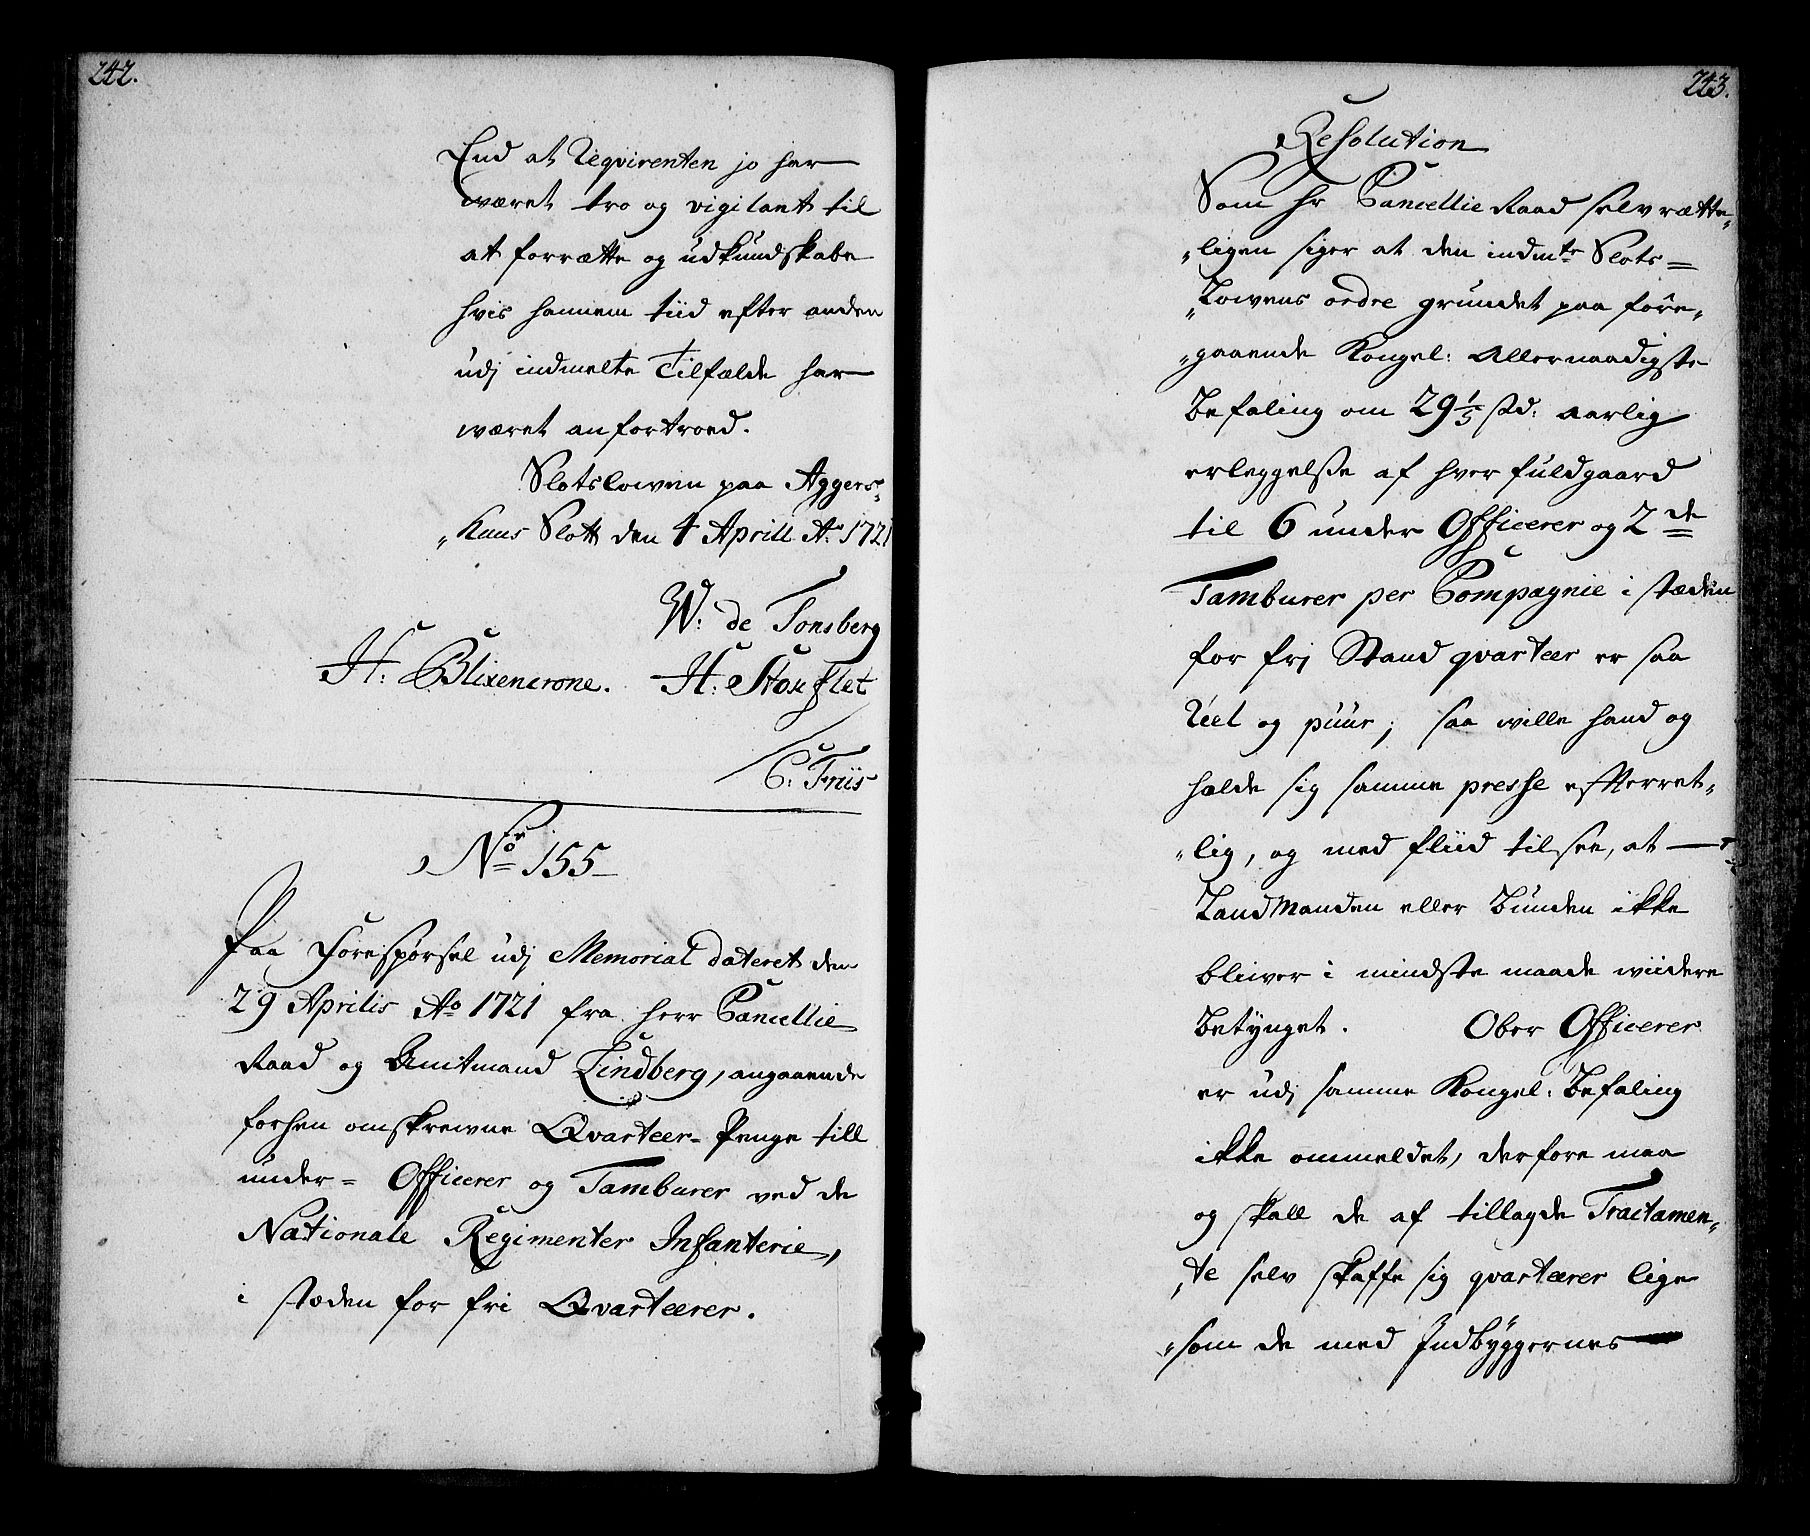 242.
End at Reqvirenten jo har
wæret tro og vigilant til
at forrætte og udkundskabe
hvis hannem tiid efter anden
udj indmelte Tilfælde har
wæret anfortroed.
Slotslowen paa Aggers„
„huus Slott den 4 Aprill Ao 1721
W: de Tonsberg
H: Blixencrone. H: Stouflet
C: Friis
No 155
Paa Forespørsel udj Memorial dateret den
29 Aprilis Ao 1721 fra herr Cancellie
Raad og Amtmand Lindberg, angaaende
forhen omskrewne Qvarteer-Penge till
under= Officerer og Tamburer ved de
Nationale Regimenter Infanterie,
i stæden for fri Qvarteerer.
243.
Resolution
Som hr Cancellie Raad selv rætte„
„ligen siger at den indmte Slots=
„Lowens ordre grundet paa fore„
„gaaende Kongel: Allernaadigste
Befaling om 29 1/5 sk: aarlig
erleggelse af hver fuldgaard
til 6 under Officerer og 2de
Tamburer per Compagnie i stæden
for frj Stand qvarteer er saa
Reel og puur; saa wille hand og
holde sig samme presse efterret„
„lig, og med fliid tilsee, at
Landmanden eller Bunden ikke
bliwer i mindste maade wiidere
Betynget. Ober Officerer
er udj samme Kongel: Befaling
ikke ommeldet, derfore maa
og skall de af tillagde Tractamen„
„te selv skaffe sig qvarteerer lige
„som de med Indbyggernes